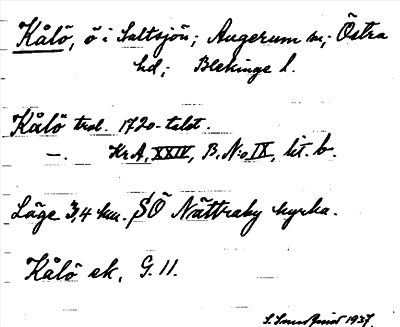 Kålö, ö i Saltsjön; Augerum sn; Östra
hd; Blekinge l.
Kålö trol. 1720-talet.
—. KrA, XXIV, B. N:o IX, lit. b.
Läge 3,4 km. SÖ Nättraby kyrka.
Kålö ek. G. 11.
1937.